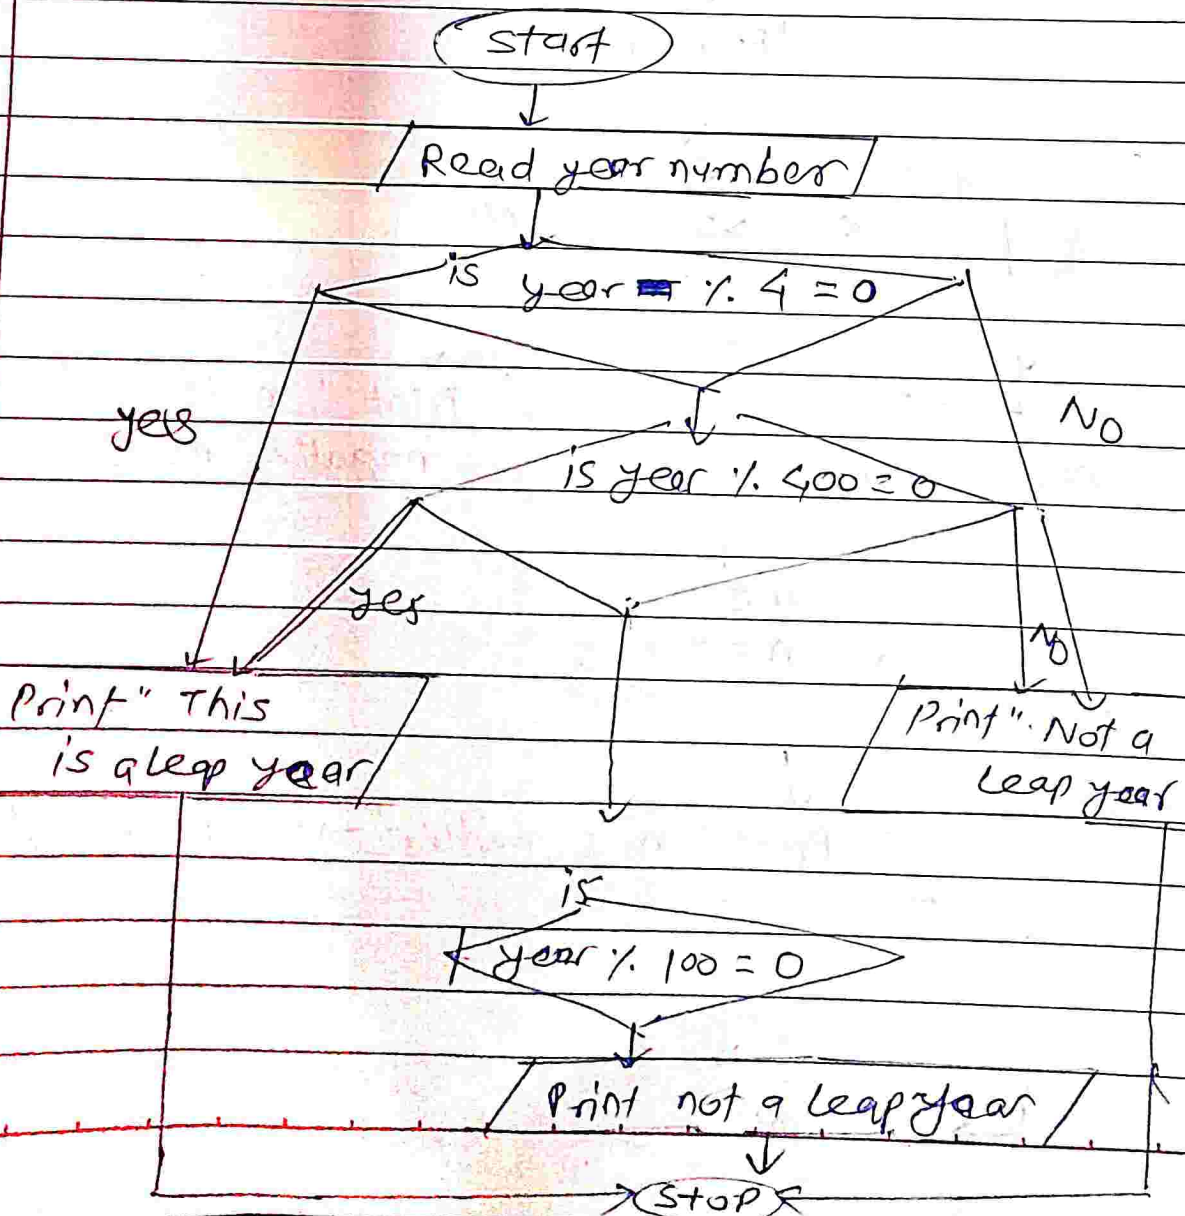 start
Read year number
is year % 4 = 0
yes
NO
is year % 400 = 0
yes
NO
Print" This
is a leap year
Print" Not a
leap year
is
year % 100 = 0
Print not a leap year
STOP